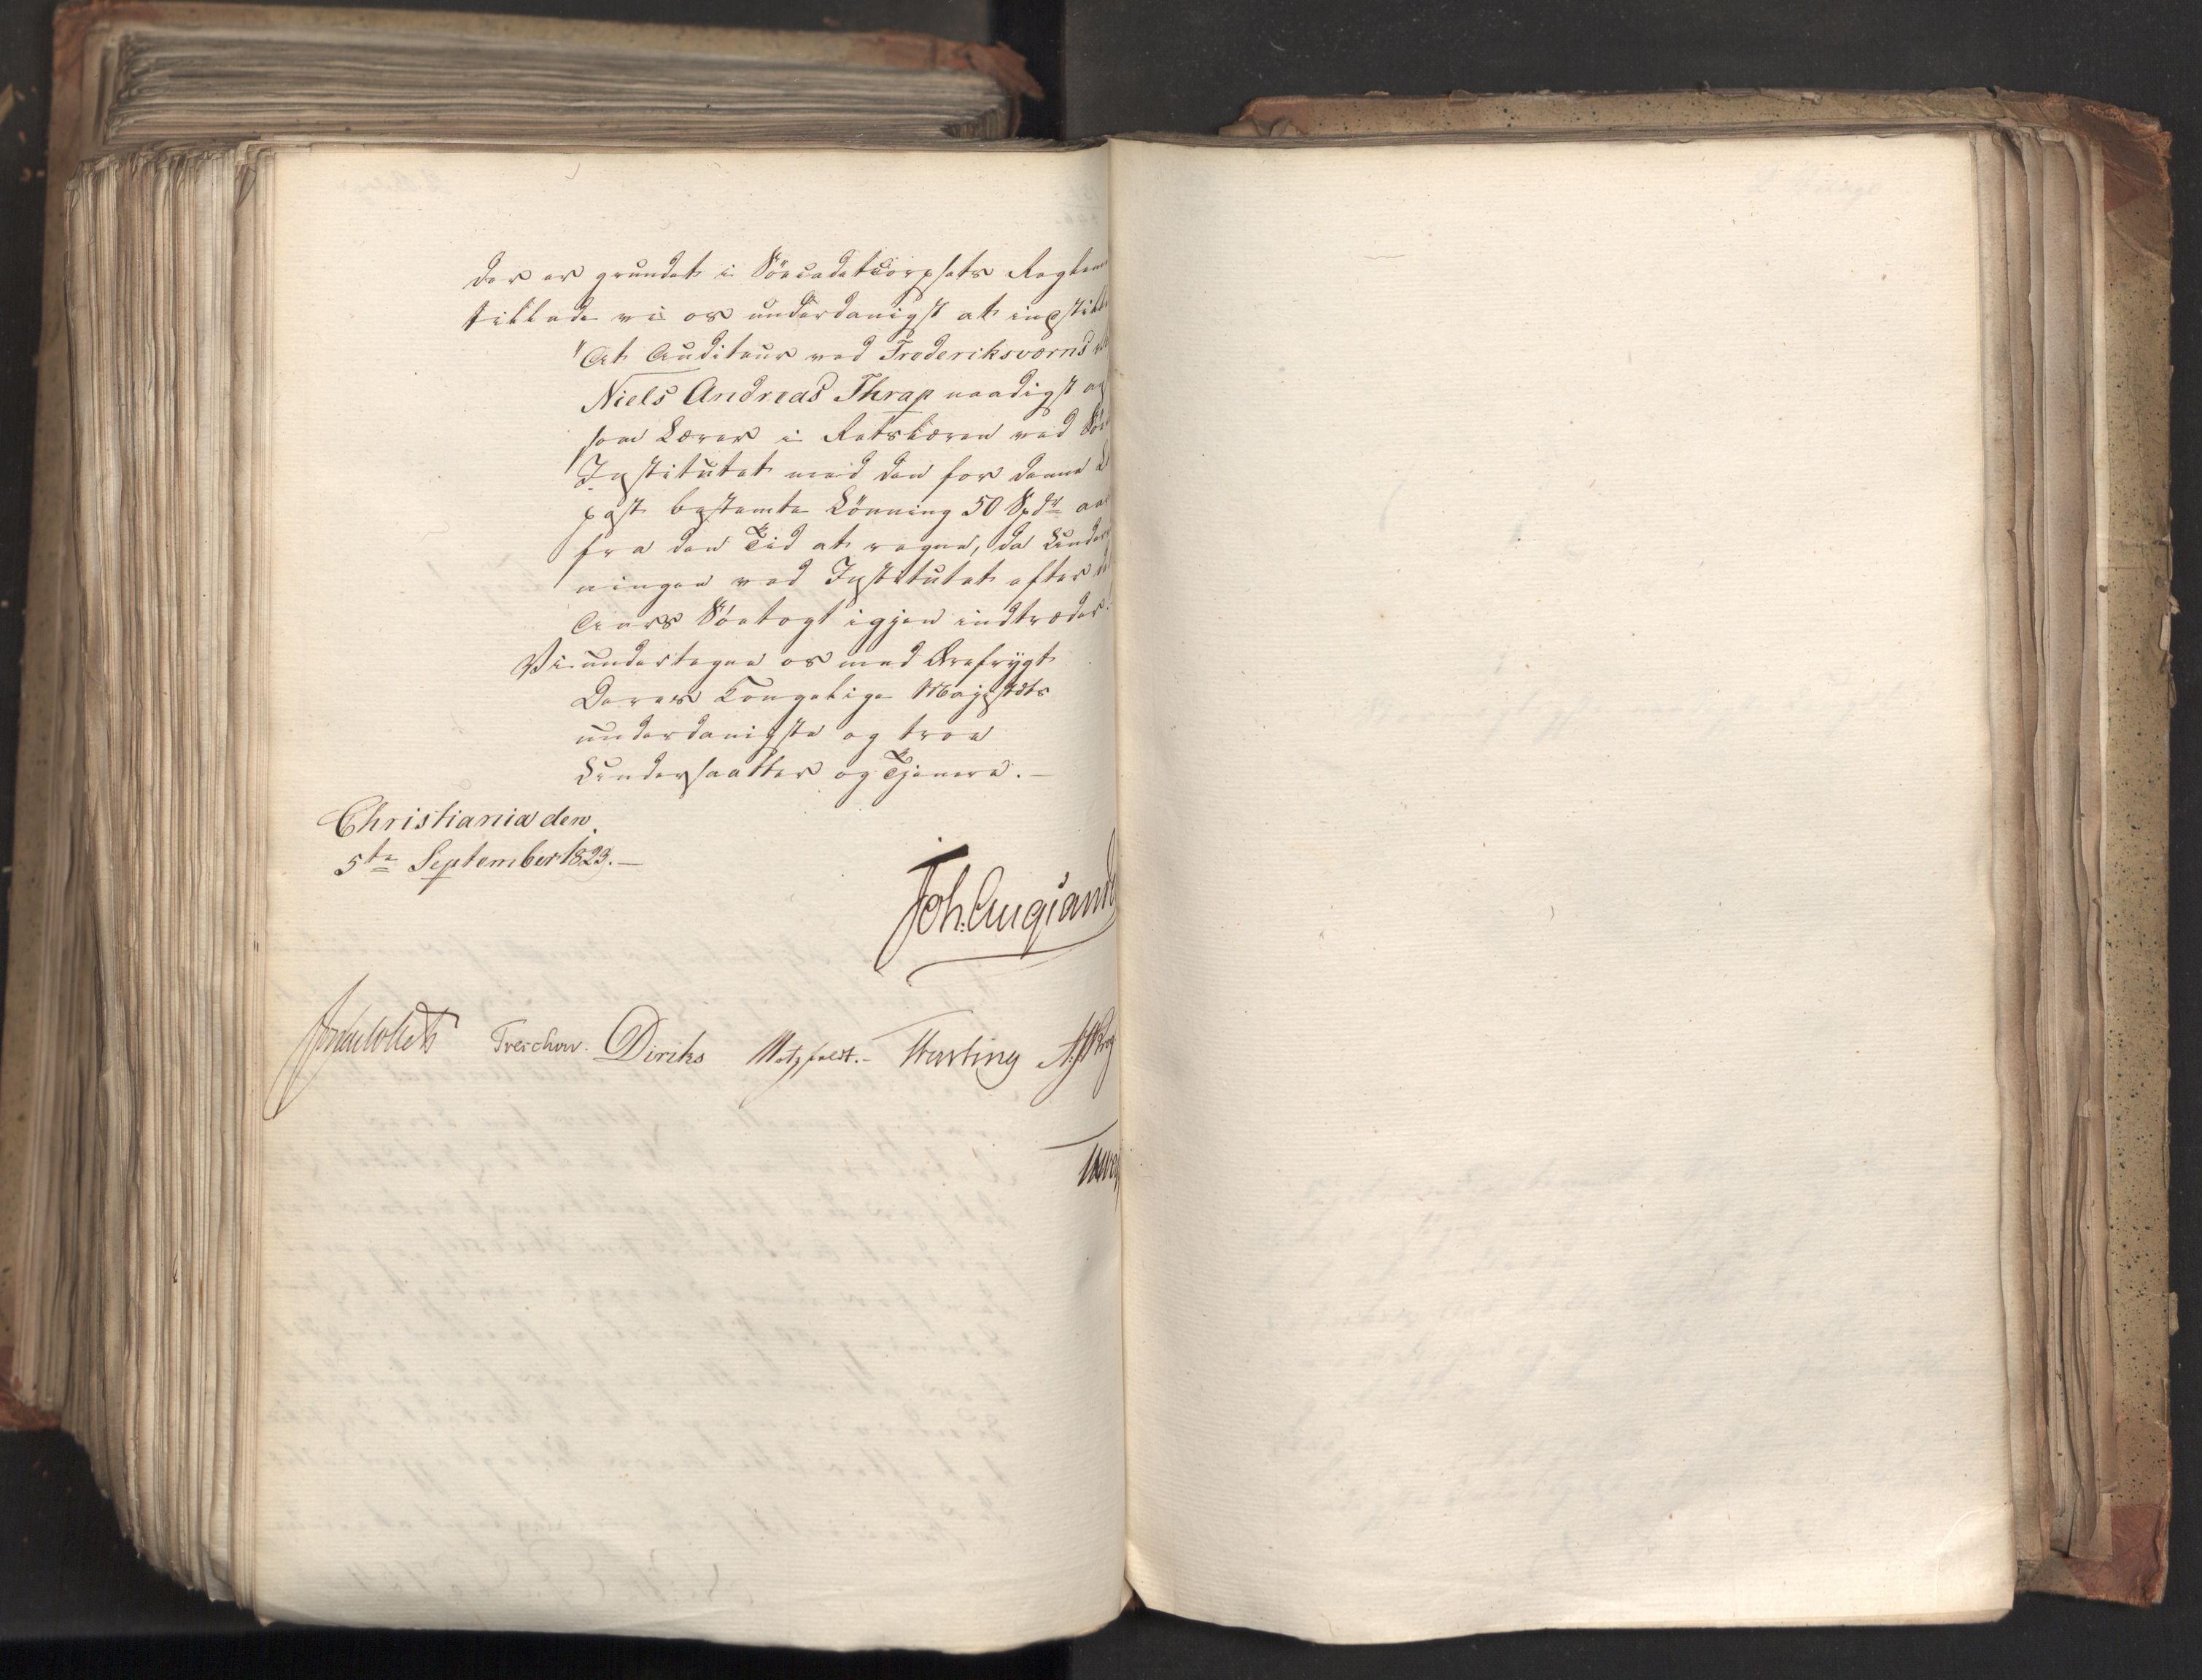 der er grundet i Söecadetcorpsets Reglem
tillade vi os underdanigst at indstille
"At Auditeur ved Frederiksværns
Niels Andreas Thrap naadigst
som Lærer i Retslæren ved Söe
Institutet med den for denne
post bestemte Lönning 50 Spdr aar
fra den Tid at regne, da Underv
ningen ved Institutet efter
Aars Söetogt igjen indtræder.
Vi undertegne os med Ærefrygt
Deres Kongelige Majestæts
underdanigste og troe
Undersaatter og Tjenere. —
Christiania den
5te September 1823. —
Joh. Aug. Sand
Treschow. Diriks Motzfeldt. – Fasting